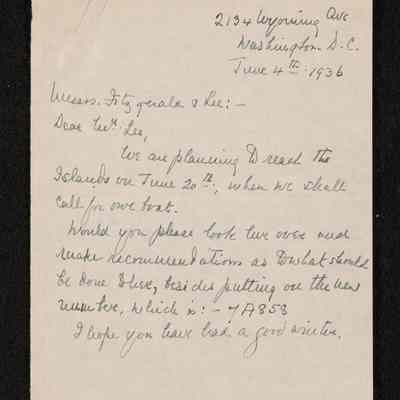 2134 Wyoming Ave
Washington D.C.
June 4th 1936
Messrs. Fitzgerald & Lee:-
Dear Mr. Lee,
We are planning to reach the
Islands on June 20th, when we shall
call for our boat.
Would you please look her over and
make recommendations as to what should
be done to her, besides putting on the new
number, which is:- 7A858
I hope you have had a good winter.